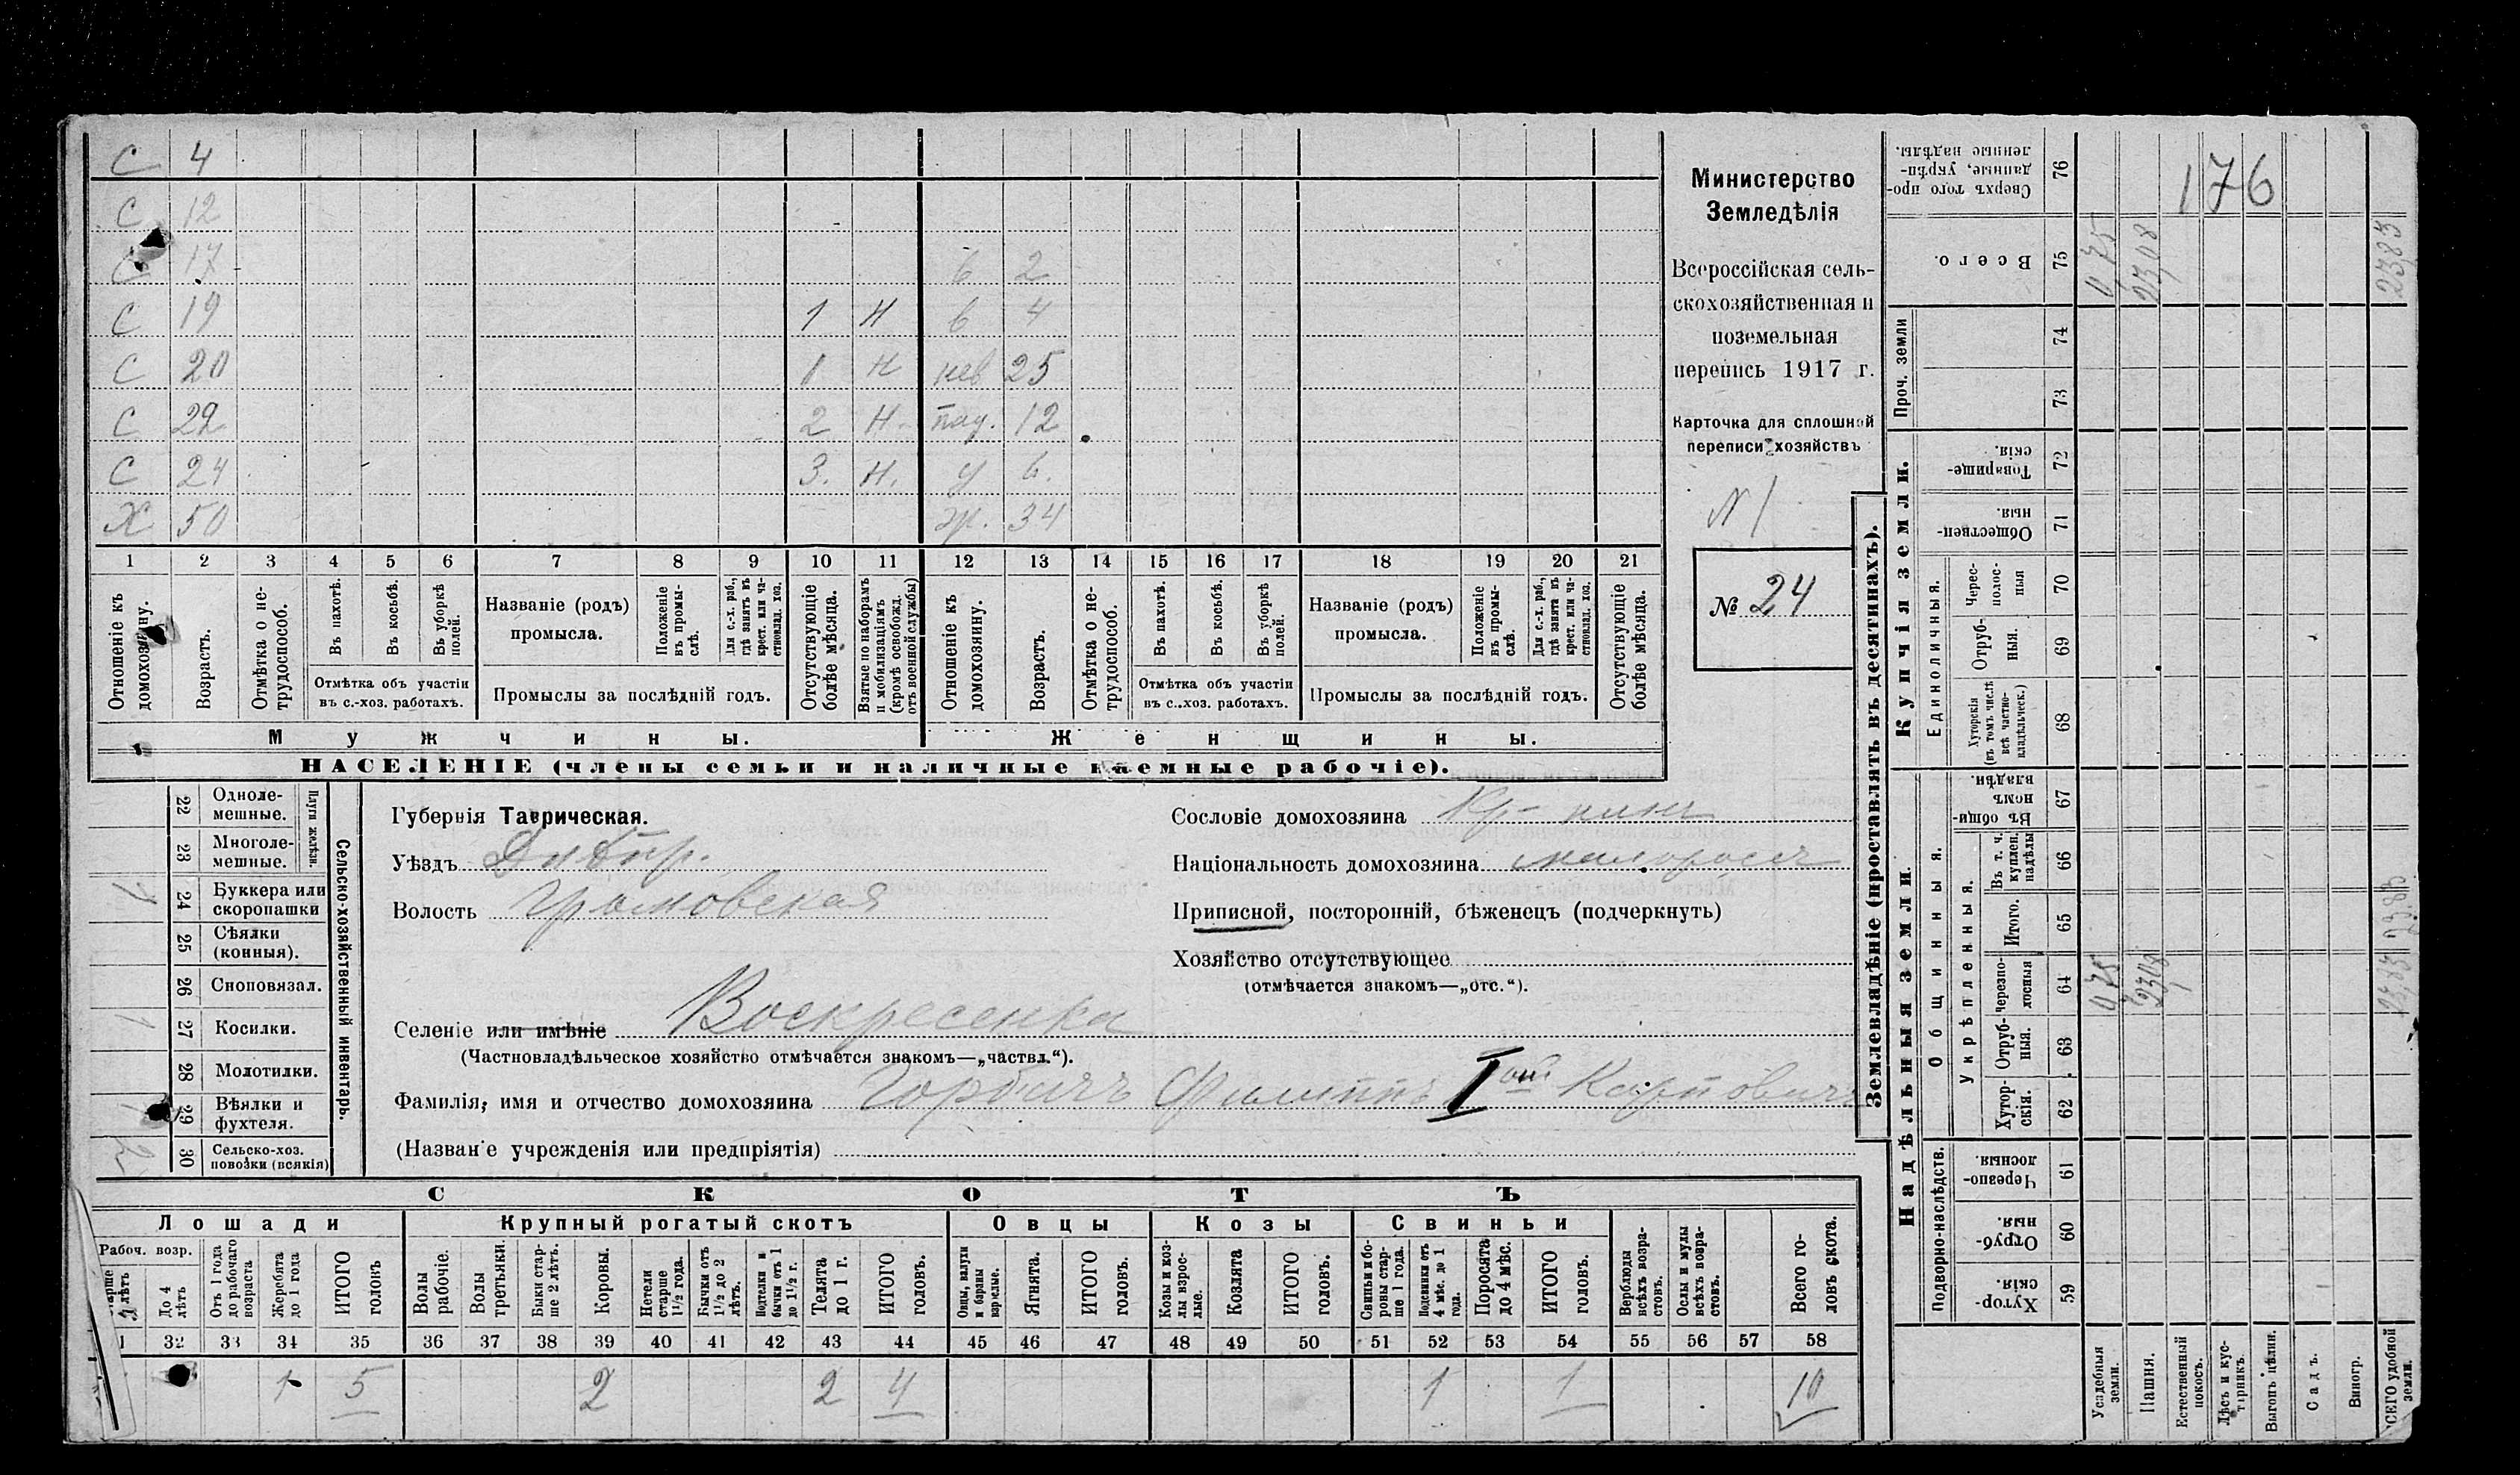 С 4
С 12
С 17 в 2
С 19 1 Н в 4
С 20 1 Н нев 25
С 22 2 Н. пад. 12
С 24 3. Н. у 6.
Х 50 ж. 34
1 2 3 4 5 6 7 8 9 10 11 12 13 14 15 16 17 18 19 20 21
Отношеніе къ домохозяину.
Возрастъ.
Отмѣтка о не-трудоспособ.
Въ пахотѣ.
Въ косьбѣ.
Въ уборкѣ полей.
Отмѣтка объ участіи въ с.-хоз. работахъ.
Названіе (родъ) промысла.
Положеніе въ промы-слѣ.
Для с.-х. раб., гдѣ занятъ въ крест. или ча-стновлад. хоз.
Промыслы за послѣдній годъ.
Отсутствующіе болѣе мѣсяца.
Взятые по наборамъ и мобилизаціямъ (кромѣ освобожд. отъ военной службы)
Отношеніе къ домохозяину.
Возрастъ.
Отмѣтка о не-трудоспособ.
Въ пахотѣ.
Въ косьбѣ.
Въ уборкѣ полей.
Отмѣтка объ участіи въ с.-хоз. работахъ.
Названіе (родъ) промысла.
Положеніе въ промы-слѣ.
Для с.-х. раб., гдѣ занята въ крест. или ча-стновлад. хоз.
Промыслы за послѣдній годъ.
Отсутствующіе болѣе мѣсяца.
Мужчины. Женщины.
НАСЕЛЕНІЕ (члены семьи и наличные наемные рабочіе).
Министерство
Земледѣлія
Всероссійская сель-
скохозяйственная и
поземельная
перепись 1917 г.
Карточка для сплошной
переписи хозяйствъ
N 1
№ 24
22 Одноле-мешные.
23 Многоле-мешные.
Плуги желѣзн.
24 Буккера или скоропашки 1
25 Сѣялки (конныя).
26 Сноповязал.
27 Косилки. 1
28 Молотилки.
29 Вѣялки и фухтеля.
30 Сельско-хоз. повозки (всякія) 2
Сельско-хозяйственный инвентарь.
Губернія Таврическая.
Уѣздъ Днѣпр.
Волость Громовская
Селеніе или имѣніе Воскресенка
(Частновладѣльческое хозяйство отмѣчается знакомъ—„частвл.“).
Фамилія, имя и отчество домохозяина Горбачъ Филиппъ I ый Карповичъ
(Названіе учрежденія или предпріятія)
Сословіе домохозяина Кр-нинъ
Національность домохозяина малороссъ
Приписной, посторонній, бѣженецъ (подчеркнуть)
Хозяйство отсутствующее
(отмѣчается знакомъ—„отс.“).
СКОТЪ
Лошади Крупный рогатый скотъ Овцы Козы Свиньи
Рабоч. возр.
До 4 лѣтъ
Отъ 1 года до рабочаго возраста
Жеребята до 1 года
ИТОГО головъ
Волы рабочіе.
Волы третьяки.
Быки стар-ше 2 лѣтъ.
Коровы.
Нетели старше 1½ года.
Бычки отъ 1½ до 2 лѣтъ.
Подтелки и бычки отъ 1 до 1½ г.
Телята до 1 г.
ИТОГО головъ.
Овцы, валухи и бараны взрослые.
Ягнята.
ИТОГО головъ.
Козы и коз-лы взрос-лые.
Козлята
ИТОГО головъ.
Свиньи и бо-ровы стар-ше 1 года.
Подсвинки отъ 4 мѣс. до 1 года.
Поросята до 4 мѣс.
ИТОГО головъ.
Верблюды всѣхъ возра-стовъ.
Ослы и мулы всѣхъ возра-стовъ.
Всего го-ловъ скота.
32 33 34 35 36 37 38 39 40 41 42 43 44 45 46 47 48 49 50 51 52 53 54 55 56 57 58
1 5 2 2 4 1 1 10
Землевладѣніе (проставлять въ десятинахъ).
Надѣльныя земли. Купчія земли. Проч. земли
Подворно-наслѣдств. Общинныя. Укрѣпленныя. Единоличныя.
59 Хутор-скія.
60 Отруб-ныя.
61 Черезпо-лосныя.
62 Хутор-скія.
63 Отруб-ныя.
64 Черезпо-лосныя
65 Итого.
66 Въ т. ч. куплен. надѣлы
67 Въ общи-номъ владѣн.
68 Хуторскія (въ томъ числѣ всѣ частно-владѣльческ.)
69 Отруб-ныя.
70 Черес-полос-ныя
71 Обществен-ныя.
72 Товарище-скія.
73
74
75 Всего.
76 Сверхъ того про-данные, укрѣп-ленные надѣлы.
Усадебныя земли. 0,75 0,75
Пашня. 23,08 23,08
Естественный покосъ.
Лѣсъ и кус-тарникъ.
Выгонъ цѣлин.
Садъ.
Виногр.
ВСЕГО удобной земли. 23,83 23,83 23,83
176